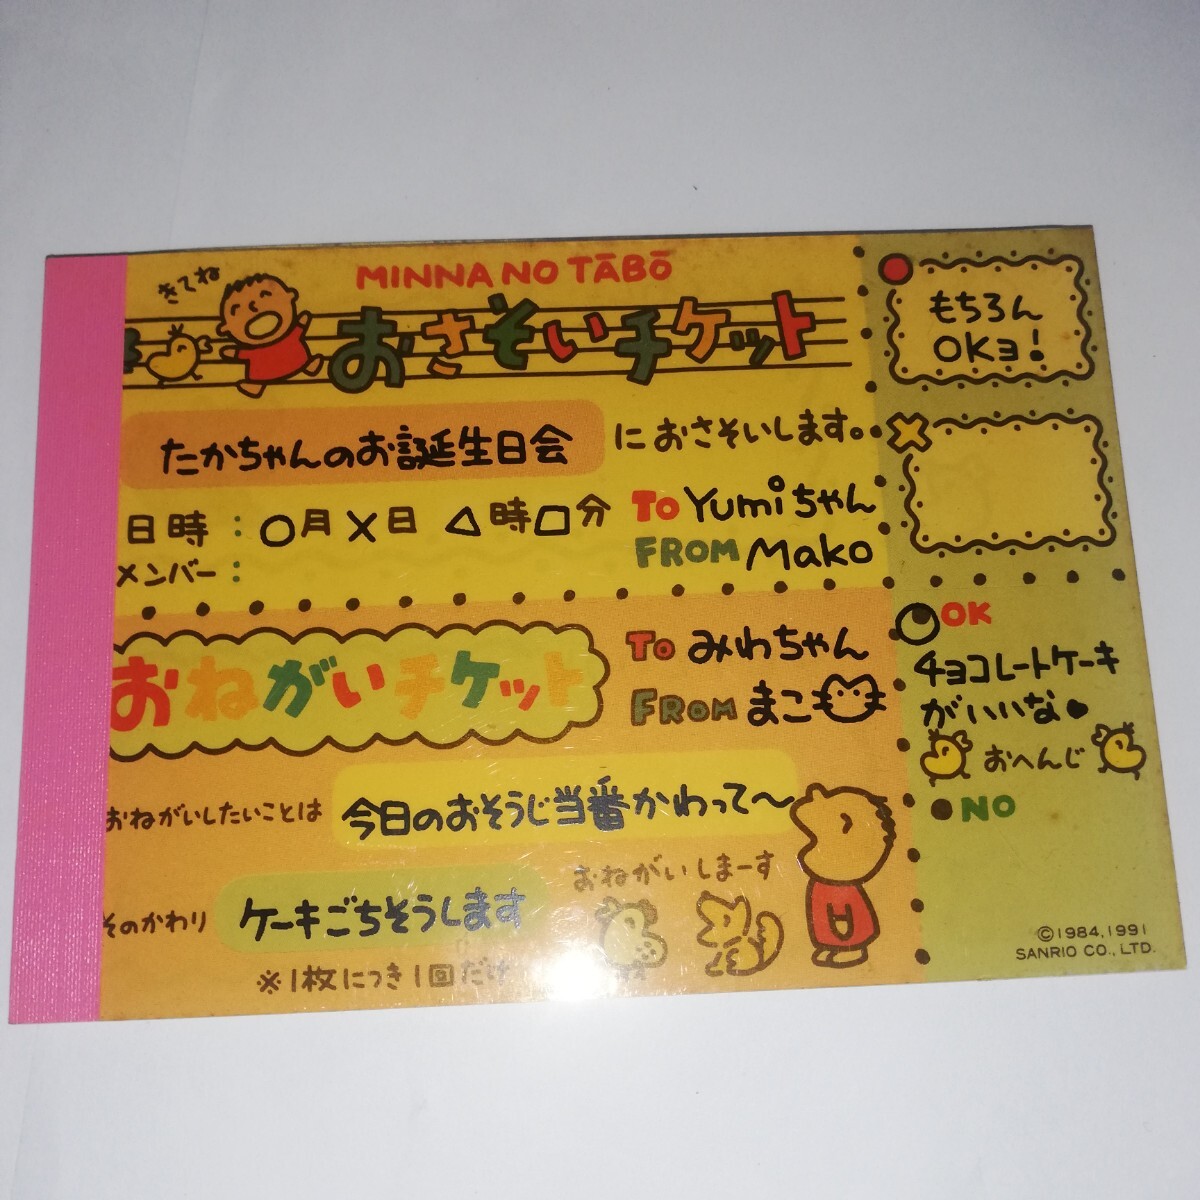 きてね
MINNA NO TĀBŌ
おさそいチケット
たかちゃんのお誕生日会 におさそいします。
日時：○月×日 △時□分
メンバー：
To Yumiちゃん
FROM Mako
もちろん
OKョ!
おねがいチケット
To みわちゃん
FROM まこ
おねがいしたいことは 今日のおそうじ当番かわって〜
そのかわり ケーキごちそうします
おねがいしまーす
※1枚につき1回だけ
OK
チョコレートケーキ
がいいな
おへんじ
NO
©1984,1991
SANRIO CO., LTD.